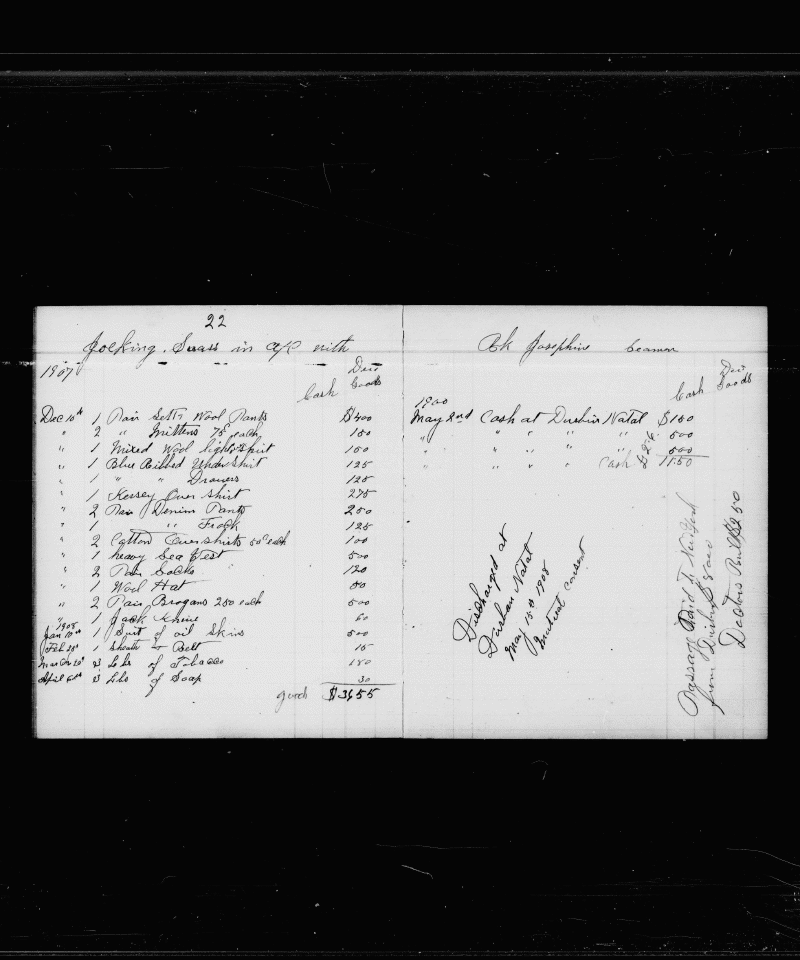 22
Jocking. Suass in a/c with
1907
Due
Cash Goods
Dec 10th 1 Pair Setts Wool Pants $400
" 2 " Mittens 75c each 150
" 1 Mixed Wool light shirt 150
" 1 Blue Ribbed Undershirt 125
" 1 " " Drawers 125
" 1 Kersey Over Shirt 275
" 2 Pair Denim Pants 250
" 1 " Frock 125
" 2 Cotton Overshirts 50c each 100
" 1 heavy Sea Vest 500
" 2 Pair Socks 120
" 1 Wool Hat 80
" 2 Pair Brogans 250 each 500
" 1 Jack Knive 60
1908
Jan 10th 1 Suit of oil Skins 500
Feb 20th 1 Sheath & Belt 15
March 20th 3 Lbs of Tobacco 180
April 6th 3 Lbs of Soap 30
goods $3655
Bk Josephine Seaman
Due
Cash Goods
1900
May 2nd Cash at Durbin Natal $150
" " " " " 500
" " " " " 500
Cash $ 1150
Discharged at
Durban Natal
May 15th 1908
mutual consent
Passage Paid to
from Durban
Doctors Bill $2 50